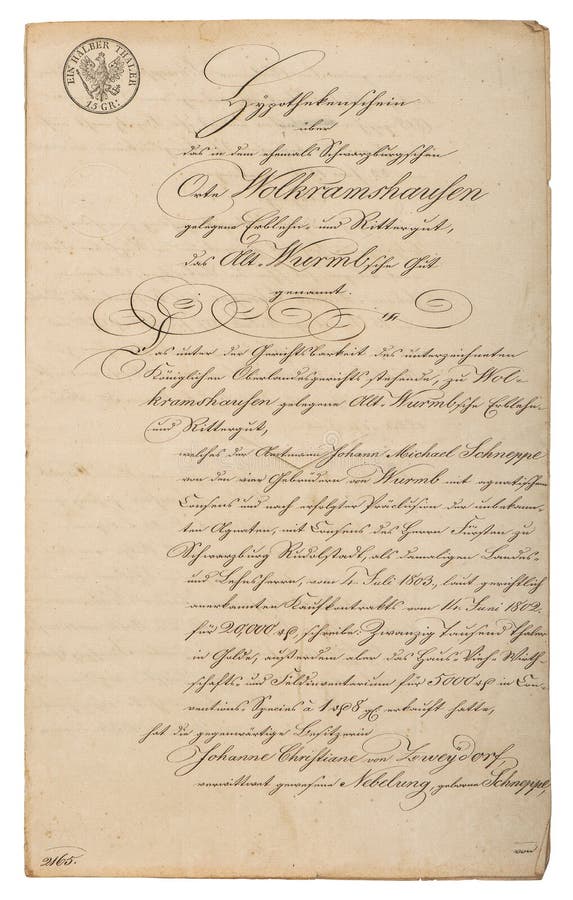 EIN HALBER THALER
15 GR:
Hypothekenschein
über
das in dem ehemals Schwarzburgschen
Orte Wolkramshausen
gelegene Erblehn- und Rittergut,
das Alt-Wurmbsche Gut
genannt.
Das unter der Gerichtsbarkeit des unterzeichneten
Königlichen Oberlandesgerichts stehende, zu Wol-
kramshausen gelegene Alt-Wurmbsche Erblehn-
und Rittergut,
welches der Amtmann Johann Michael Schneppe
von den vier Gebrüdern von Wurmb mit agnatischem
Consens und nach erfolgter Präclusion der unbekann-
ten Agnaten, mit Consens des Herrn Fürsten zu
Schwarzburg Rudolstadt, als damaligen Landes-
und Lehnsherrn, vom 4. Juli 1803., laut gerichtlich
anerkannten Kaufkontrakts vom 14. Juni 1802.
für 20,000 rℓ, schreibe: Zwanzig Tausend Thaler
in Golde, außerdem aber das Haus- Vieh- Wirth-
schafts- und Feldinventarium für 5000 rℓ in Con-
ventions-Species à 1 rℓ 8 gℓ erkauft hatte,
hat die gegenwärtige Besitzerin
Johanne Christiane von Zweydorf,
verwittwet gewesene Nebelung, geborne Schneppe,
von
2165.